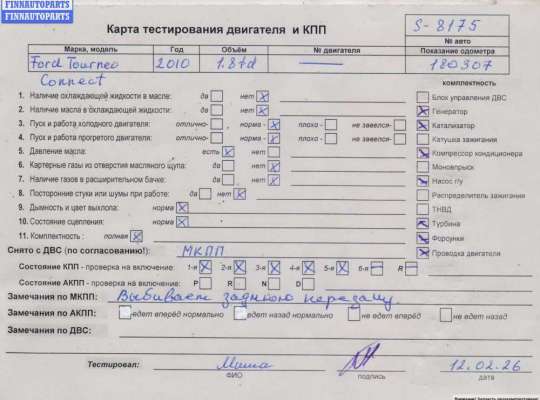 FINNAUTOPARTS
FINNAUTOPARTS
Карта тестирования двигателя и КПП
S-8175
№ авто
Марка, модель Год Объём № двигателя Показание одометра
Ford Tourneo 2010 1.8td — 180307
Connect
комплектность
1. Наличие охлаждающей жидкости в масле: да нет Блок управления ДВС
2. Наличие масла в охлаждающей жидкости: да нет Генератор
3. Пуск и работа холодного двигателя: отлично- норма - плохо - не завелся- Катализатор
4. Пуск и работа прогретого двигателя: отлично- норма - плохо - не завелся- Катушка зажигания
5. Давление масла: есть нет Компрессор кондиционера
6. Картерные газы из отверстия масляного щупа: да нет Моновпрыск
7. Наличие газов в расширительном бачке: да нет Насос г/у
8. Посторонние стуки или шумы при работе: да нет Распределитель зажигания
9. Дымность и цвет выхлопа: норма ТНВД
10. Состояние сцепления: норма Турбина
11. Комплектность : полная Форсунки
Снято с ДВС (по согласованию!): МКПП Проводка двигателя
Состояние КПП - проверка на включение: 1-я 2-я 3-я 4-я 5-я 6-я R -
Состояние АКПП - проверка на включение: P R N D
Замечания по МКПП: Выбивает заднюю передачу.
Замечания по АКПП: едет вперёд нормально едет назад нормально не едет вперёд не едет назад
Замечания по ДВС:
Тестировал: Миша 12.02.26
ФИО подпись дата